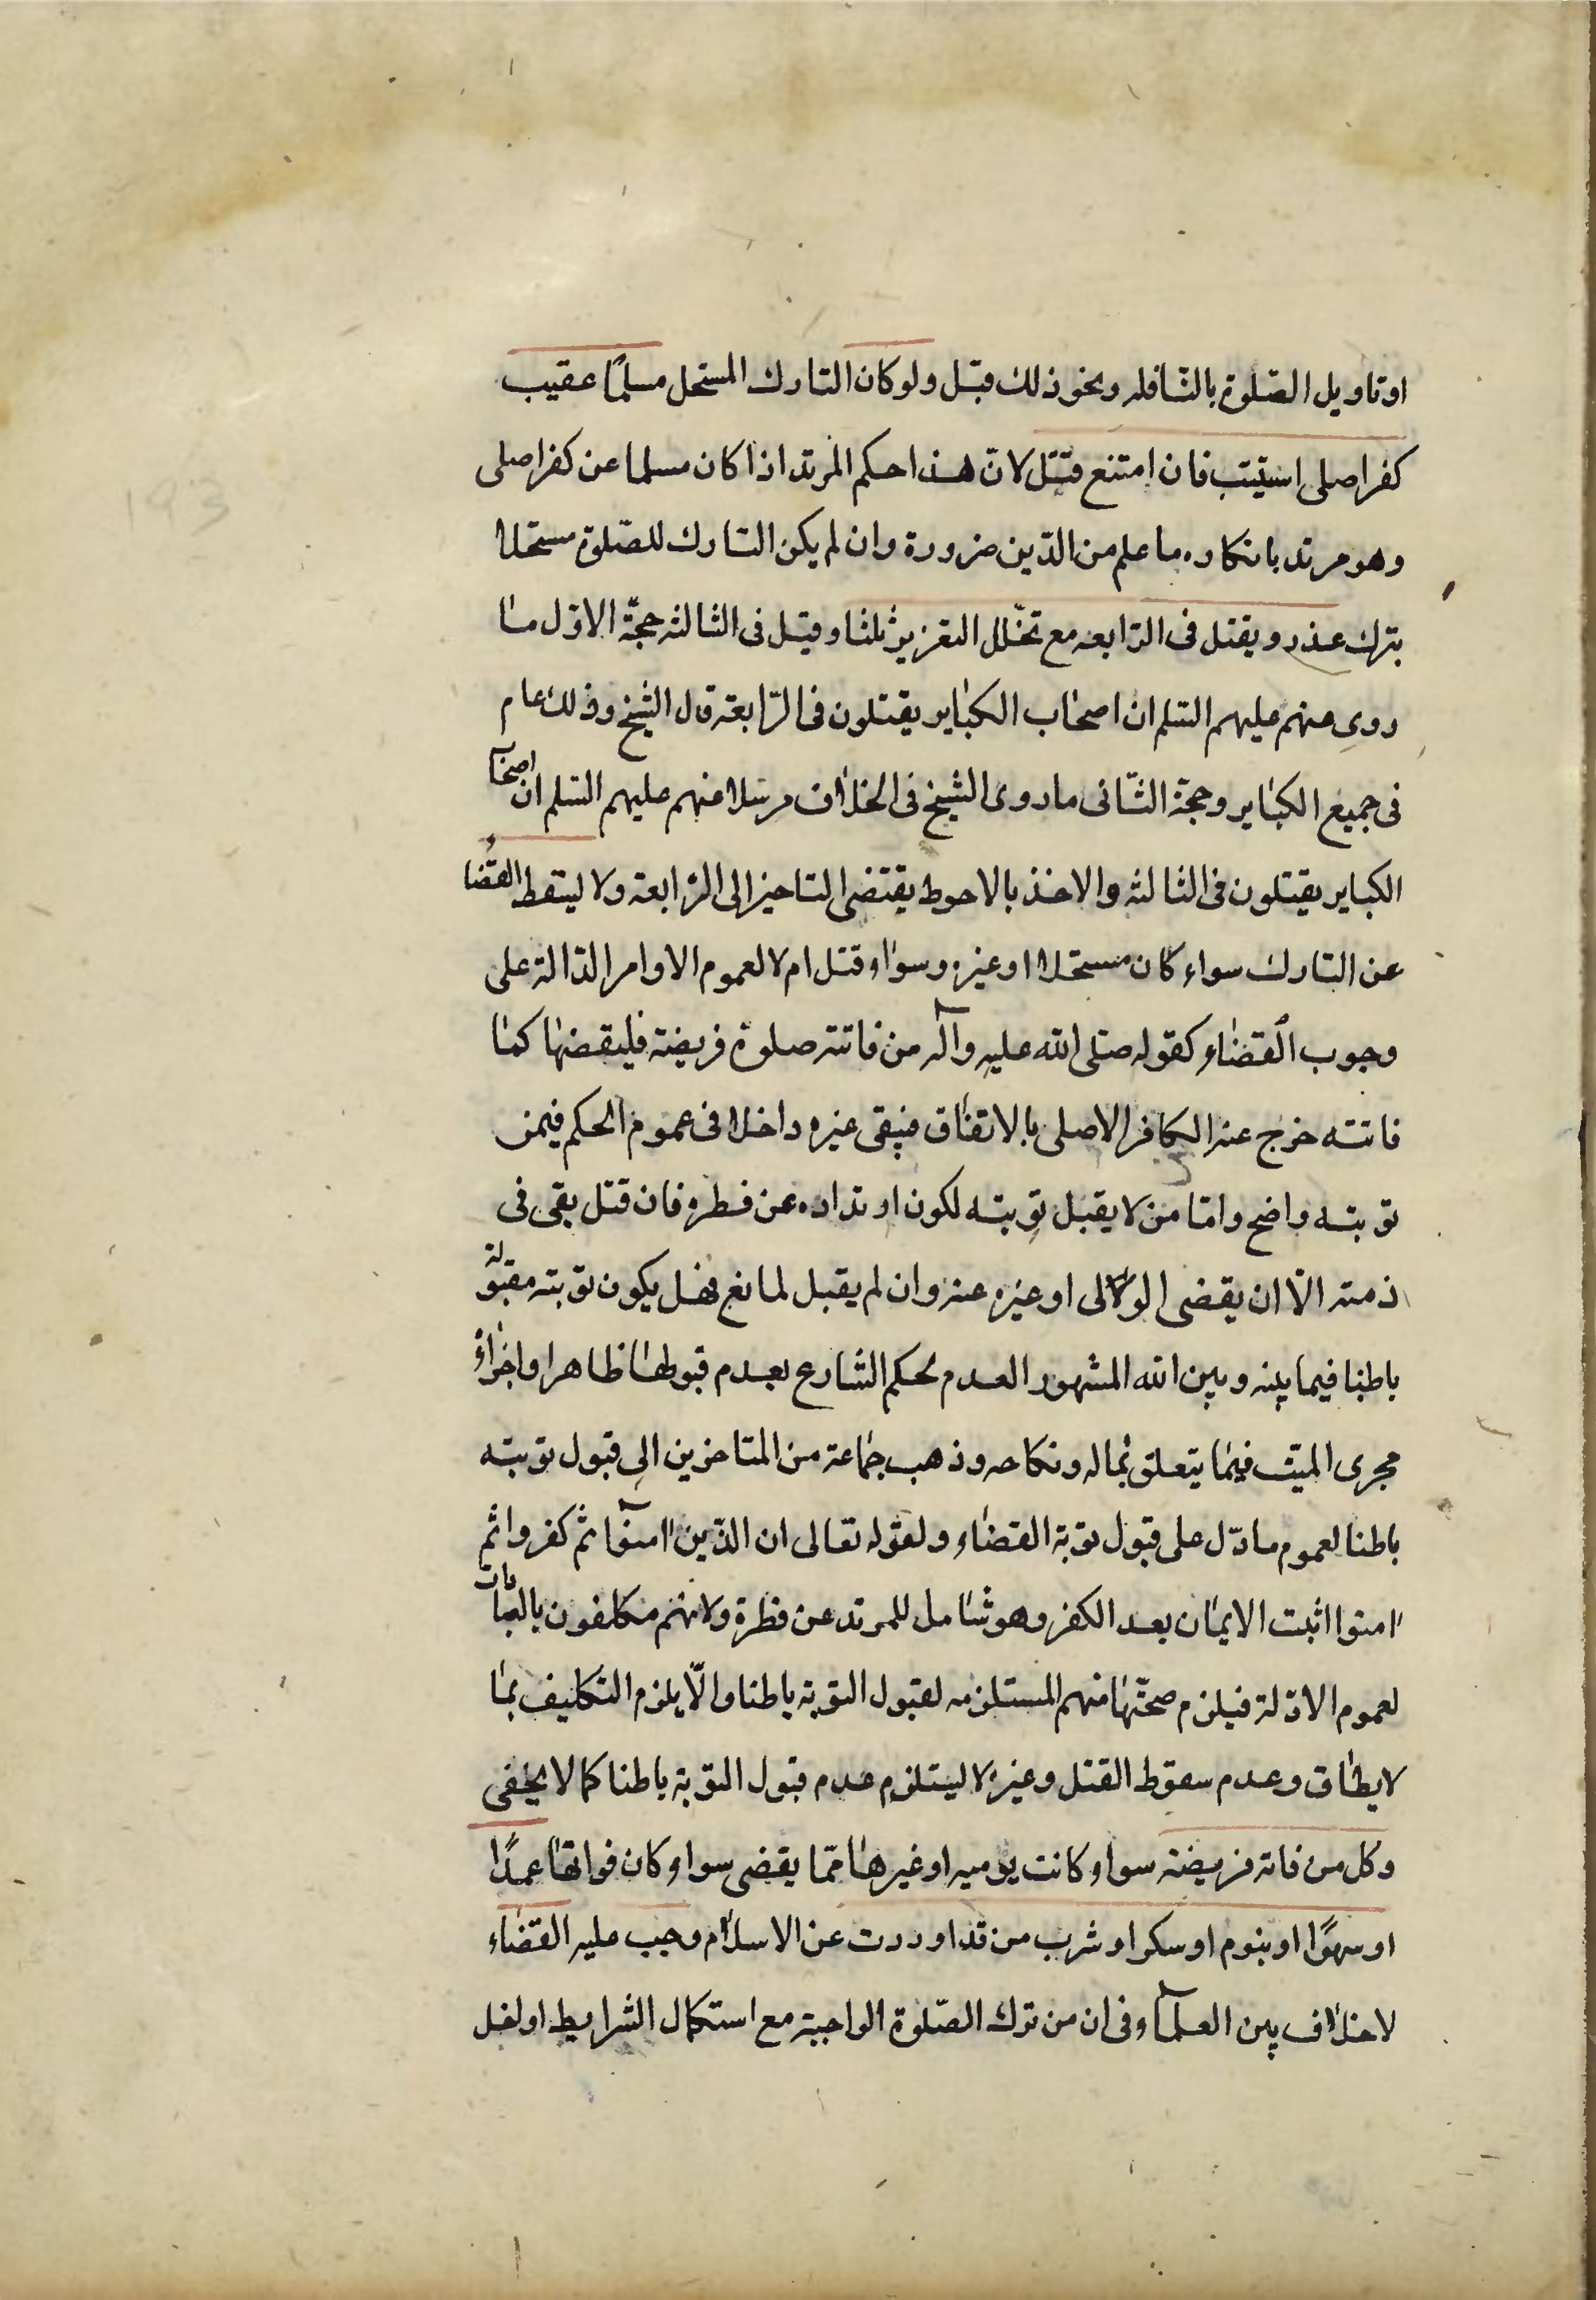 او تاويل الصّلوة بالنّافله ونحو ذلك قبّل ولو كان التارك المستحل مسلمًا عقيب
كفر اصلى استيتب فان امتنع قتل لانّ هذا حكم المرتد اذا كان مسلما عن كفر اصلى
وهو مرتد بانكاره ما علم من الدّين ضرورة وان لم يكن التارك للصّلوة مستحلا
بترك عذر ويقتل فى الرّابعه مع تخلّل التعزير ثلثا وقيل فى الثالثه حجّة الاوّل ما
روى عنهم عليهم السّلم ان اصحاب الكباير يقتلون فى الرّابعة قال الشيخ وذلك عام
فى جميع الكباير وحجة الثّانى ما روى الشيخ فى الخلاف مرسلا عنهم عليهم السّلم ان اصحا
الكباير يقتلون فى الثالثه والاخذ بالاحوط يقتضى التاخير الى الرّابعة ولا يسقط القضا
عن التارك سواء كان مستحلا او غيره وسواء قتل ام لا لعموم الاوامر الدّالة على
وجوب القضاء كقوله صلى الله عليه وآله من فاتته صلوة فريضة فليقضها كما
فاتته خرج عنه الكافر الاصلى بالاتفاق فيبقى غيره داخلا فى عموم الحكم فيمن
توبته واضح وامّا من لا يقبل توبته لكون ارتداده عن فطره فان قتل بقى فى
ذمته الّا ان يقضى الولى او غيره عنه وان لم يقبل لمانع فهل يكون توبته مقبولة
باطنا فيما بينه وبين الله المشهور العدم لحكم الشارع بعدم قبولها ظاهرا واجراءُ
مجرى الميّت فيما يتعلق بماله ونكاحه وذهب جماعة من المتاخرين الى قبول توبته
باطنا لعموم ما دلّ على قبول توبة القضاء ولقوله تعالى ان الذين امنوا ثم كفروا ثم
امنوا اثبت الايمان بعد الكفر وهو شامل للمرتد عن فطرة ولانهم مكلفون بالعبادات
لعموم الادّلة فيلزم صحّتها منهم المستلزمه لقبول التوبة باطنا والّا يلزم التكليف بما
لا يطاق وعدم سقوط القتل وغيره لا يستلزم عدم قبول التوبة باطنا كما لا يخفى
وكل من فاته فريضة سواء كانت يوميه او غيرها ممّا يقضى سواء كان فواتها عمدًا
او سهوًا او بنوم او سكر او شرب مرقد او ردت عن الاسلام وجب عليه القضاء
لا خلاف بين العلماء فى ان من ترك الصّلوة الواجبة مع استكمال الشرايط او لفل